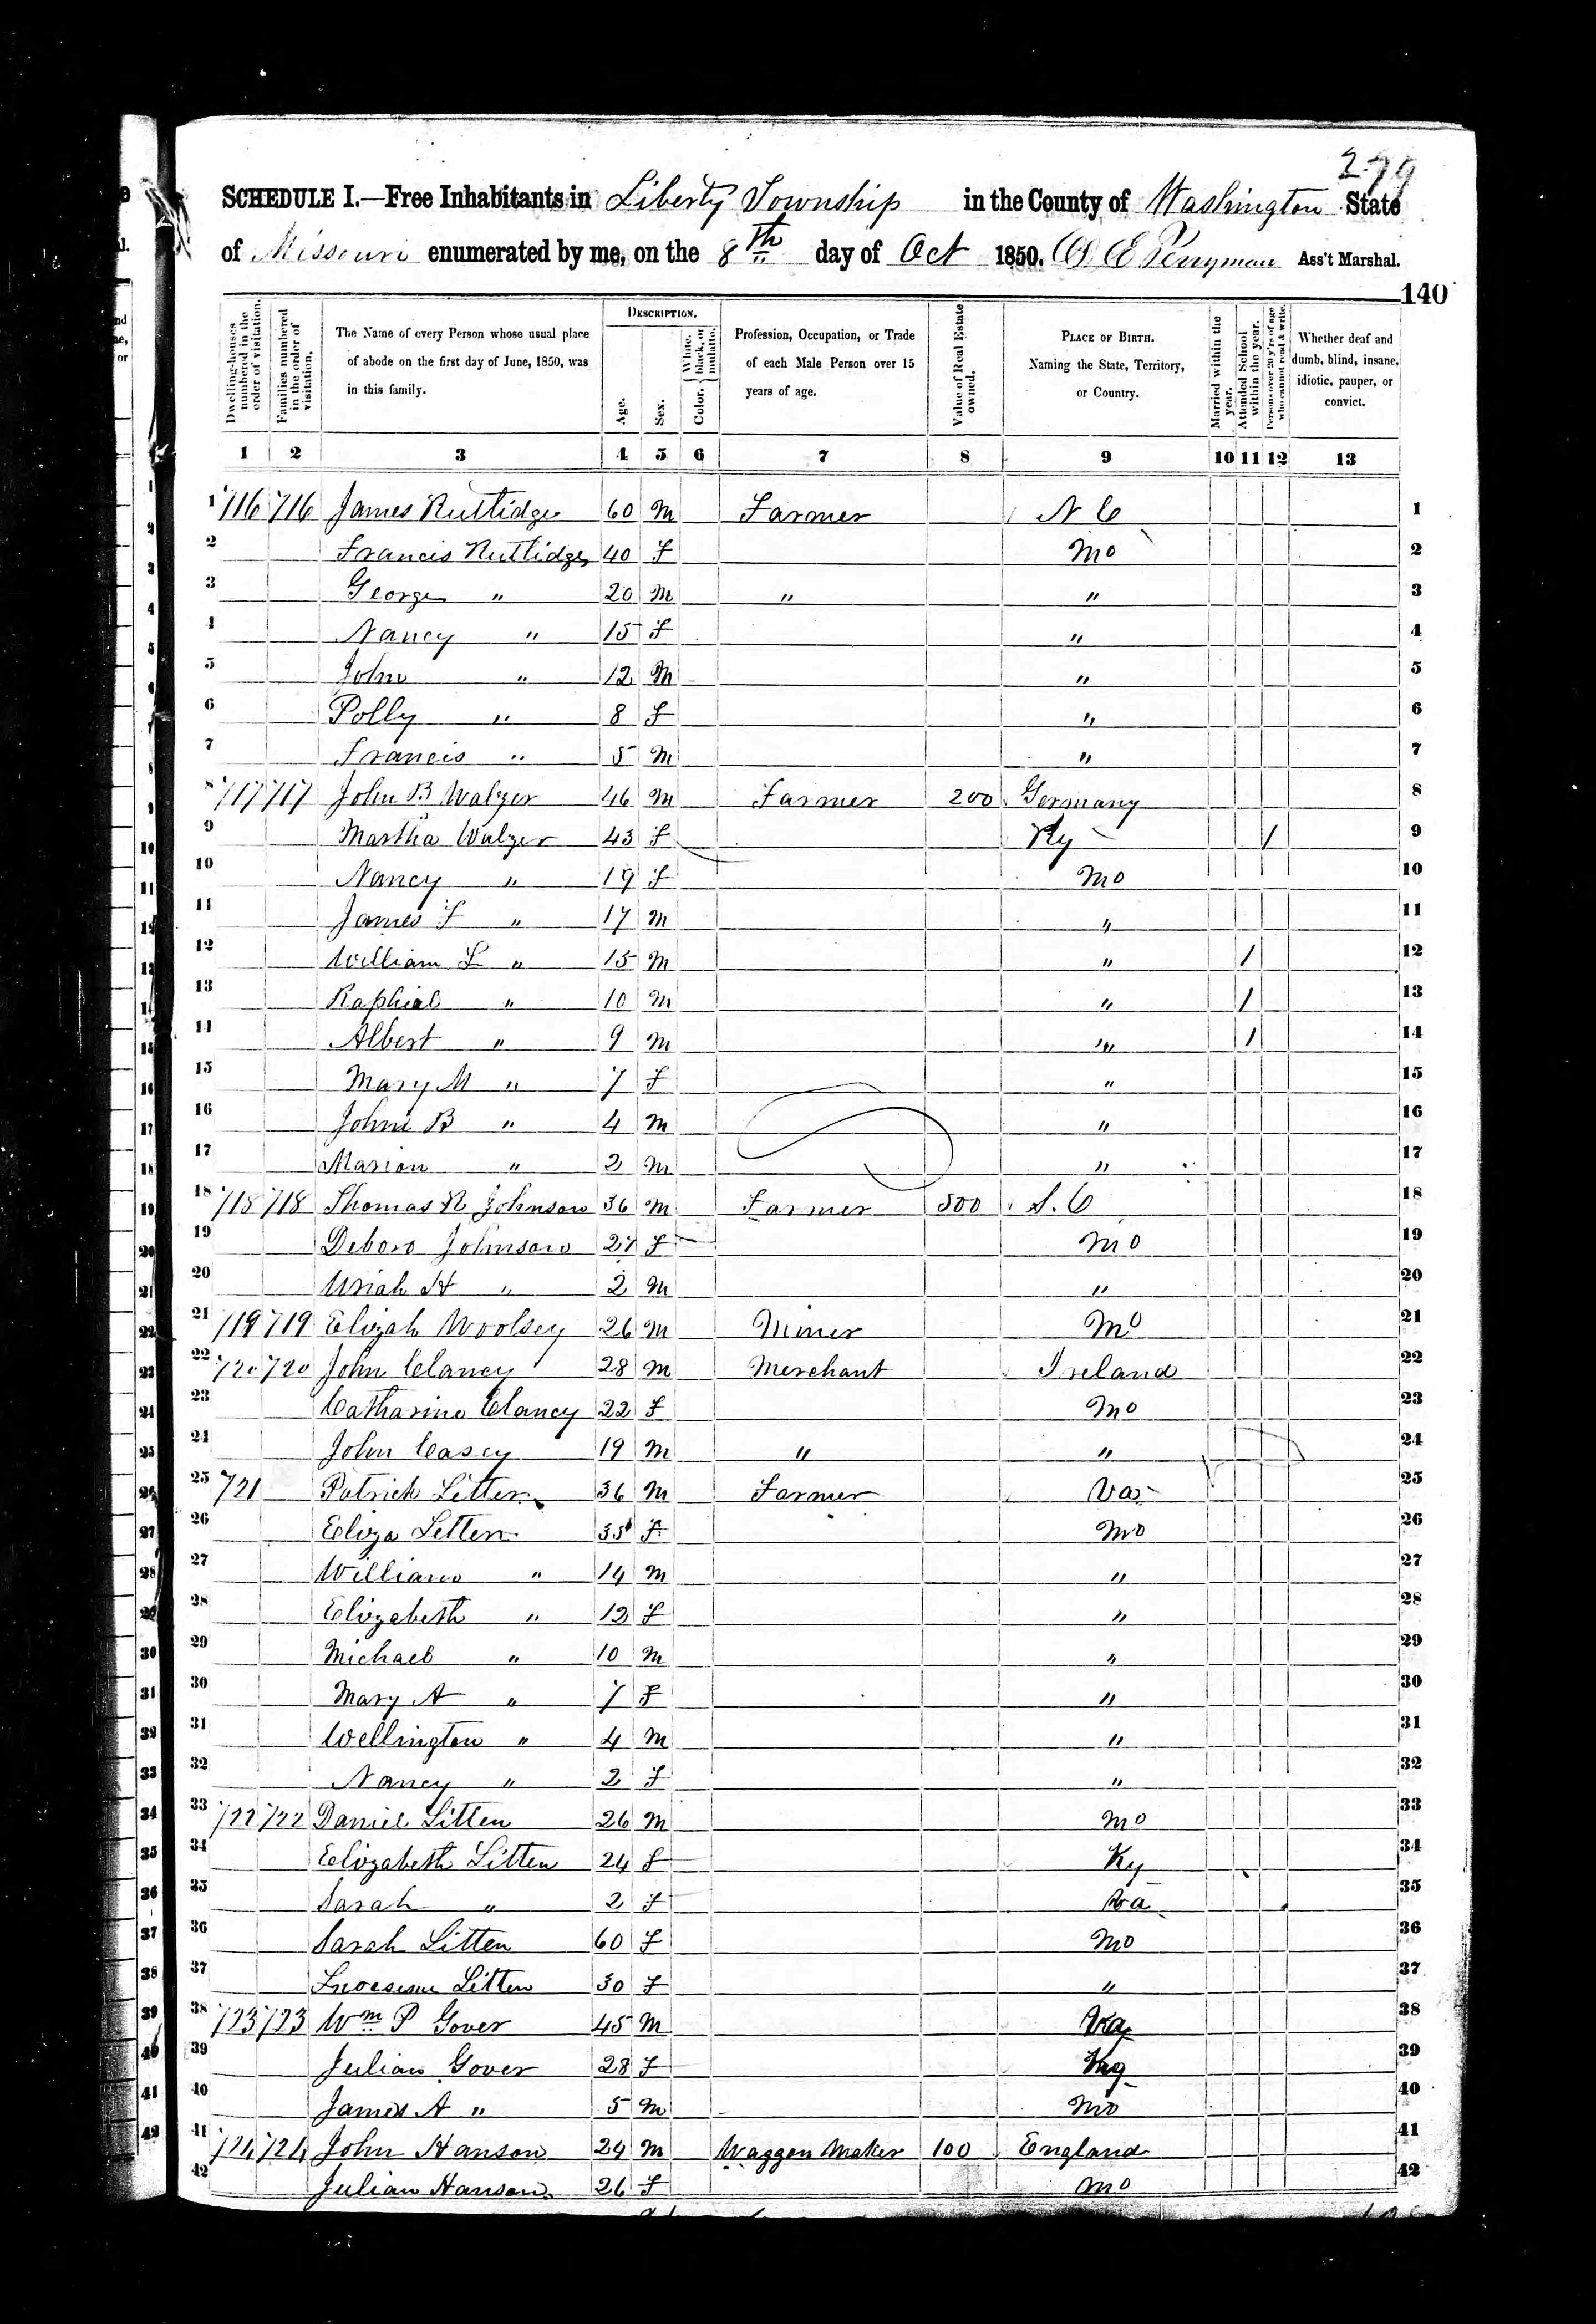 279
SCHEDULE I.—Free Inhabitants in Liberty Township in the County of Washington State
of Missouri enumerated by me, on the 8th day of Oct 1850. E Perryman Ass't Marshal.
140
Dwelling-houses numbered in the order of visitation.
Families numbered in the order of visitation.
The Name of every Person whose usual place of abode on the first day of June, 1850, was in this family.
DESCRIPTION.
Age.
Sex.
Color. { White, black, or mulatto.
Profession, Occupation, or Trade of each Male Person over 15 years of age.
Value of Real Estate owned.
PLACE OF BIRTH. Naming the State, Territory, or Country.
Married within the year.
Attended School within the year.
Persons over 20 y'rs of age who cannot read & write.
Whether deaf and dumb, blind, insane, idiotic, pauper, or convict.
1 2 3 4 5 6 7 8 9 10 11 12 13
1 716 716 James Ruttidge 60 M Farmer N C 1
2 Francis Ruttidge 40 F Mo 2
3 George " 20 M " " 3
4 Nancy " 15 F " 4
5 John " 12 M " 5
6 Polly " 8 F " 6
7 Francis " 5 M " 7
8 717 717 John B Walzer 46 M Farmer 200 Germany 8
9 Martha Walzer 43 F Ky / 9
10 Nancy " 19 F Mo 10
11 James F " 17 M " 11
12 William L " 15 M " / 12
13 Raphiel " 10 M " / 13
14 Albert " 9 M " / 14
15 Mary M " 7 F " 15
16 John B " 4 M " 16
17 Marion " 2 M " 17
18 718 718 Thomas R Johnson 36 M Farmer S. C 18
19 Deboro Johnson 27 F Mo 19
20 Uriah H " 2 M " 20
21 719 719 Elizah Woolsey 26 M Miner Mo 21
22 720 720 John Clancy 28 M Merchant Ireland 22
23 Catharine Clancy 22 F Mo 23
24 John Casey 19 M " " 24
25 721 Patrick Litten 36 M Farmer Va 25
26 Eliza Litten 35 F Mo 26
27 William " 14 M " 27
28 Elizabeth " 12 F " 28
29 Michael " 10 M " 29
30 Mary A " 7 F " 30
31 Wellington " 4 M " 31
32 Nancy " 2 F " 32
33 722 722 Daniel Litten 26 M Mo 33
34 Elizabeth Litten 24 F Ky 34
35 Sarah " 2 F Va 35
36 Sarah Litten 60 F Mo 36
37 Litten 30 F " 37
38 723 723 Wm P Gover 45 M 38
39 Julian Gover 28 F 39
40 James A " 5 M Mo 40
41 724 724 John Hanson 24 M Waggon Maker 100 England 41
42 Julian Hanson 26 F Mo 42